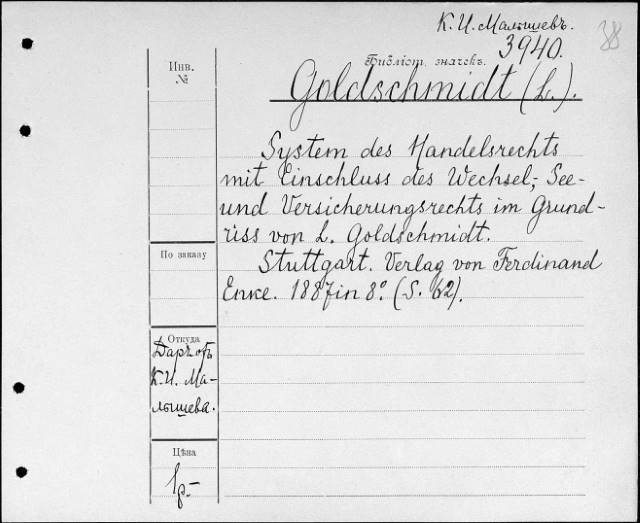 К. И. Малышевъ.
38
Библіот. значекъ.
3940.
Инв.
№
Goldschmidt (L.).
System des Handelsrechts
mit Einschluss des Wechsel-, See-
und Versicherungsrechts im Grund-
riss von L. Goldschmidt.
По заказу
Stuttgart. Verlag von Ferdinand
Enke. 1887 in 8°. (S. 62).
Откуда
Даръ отъ
К. И. Ма-
лышева.
Цѣна
1 р.-